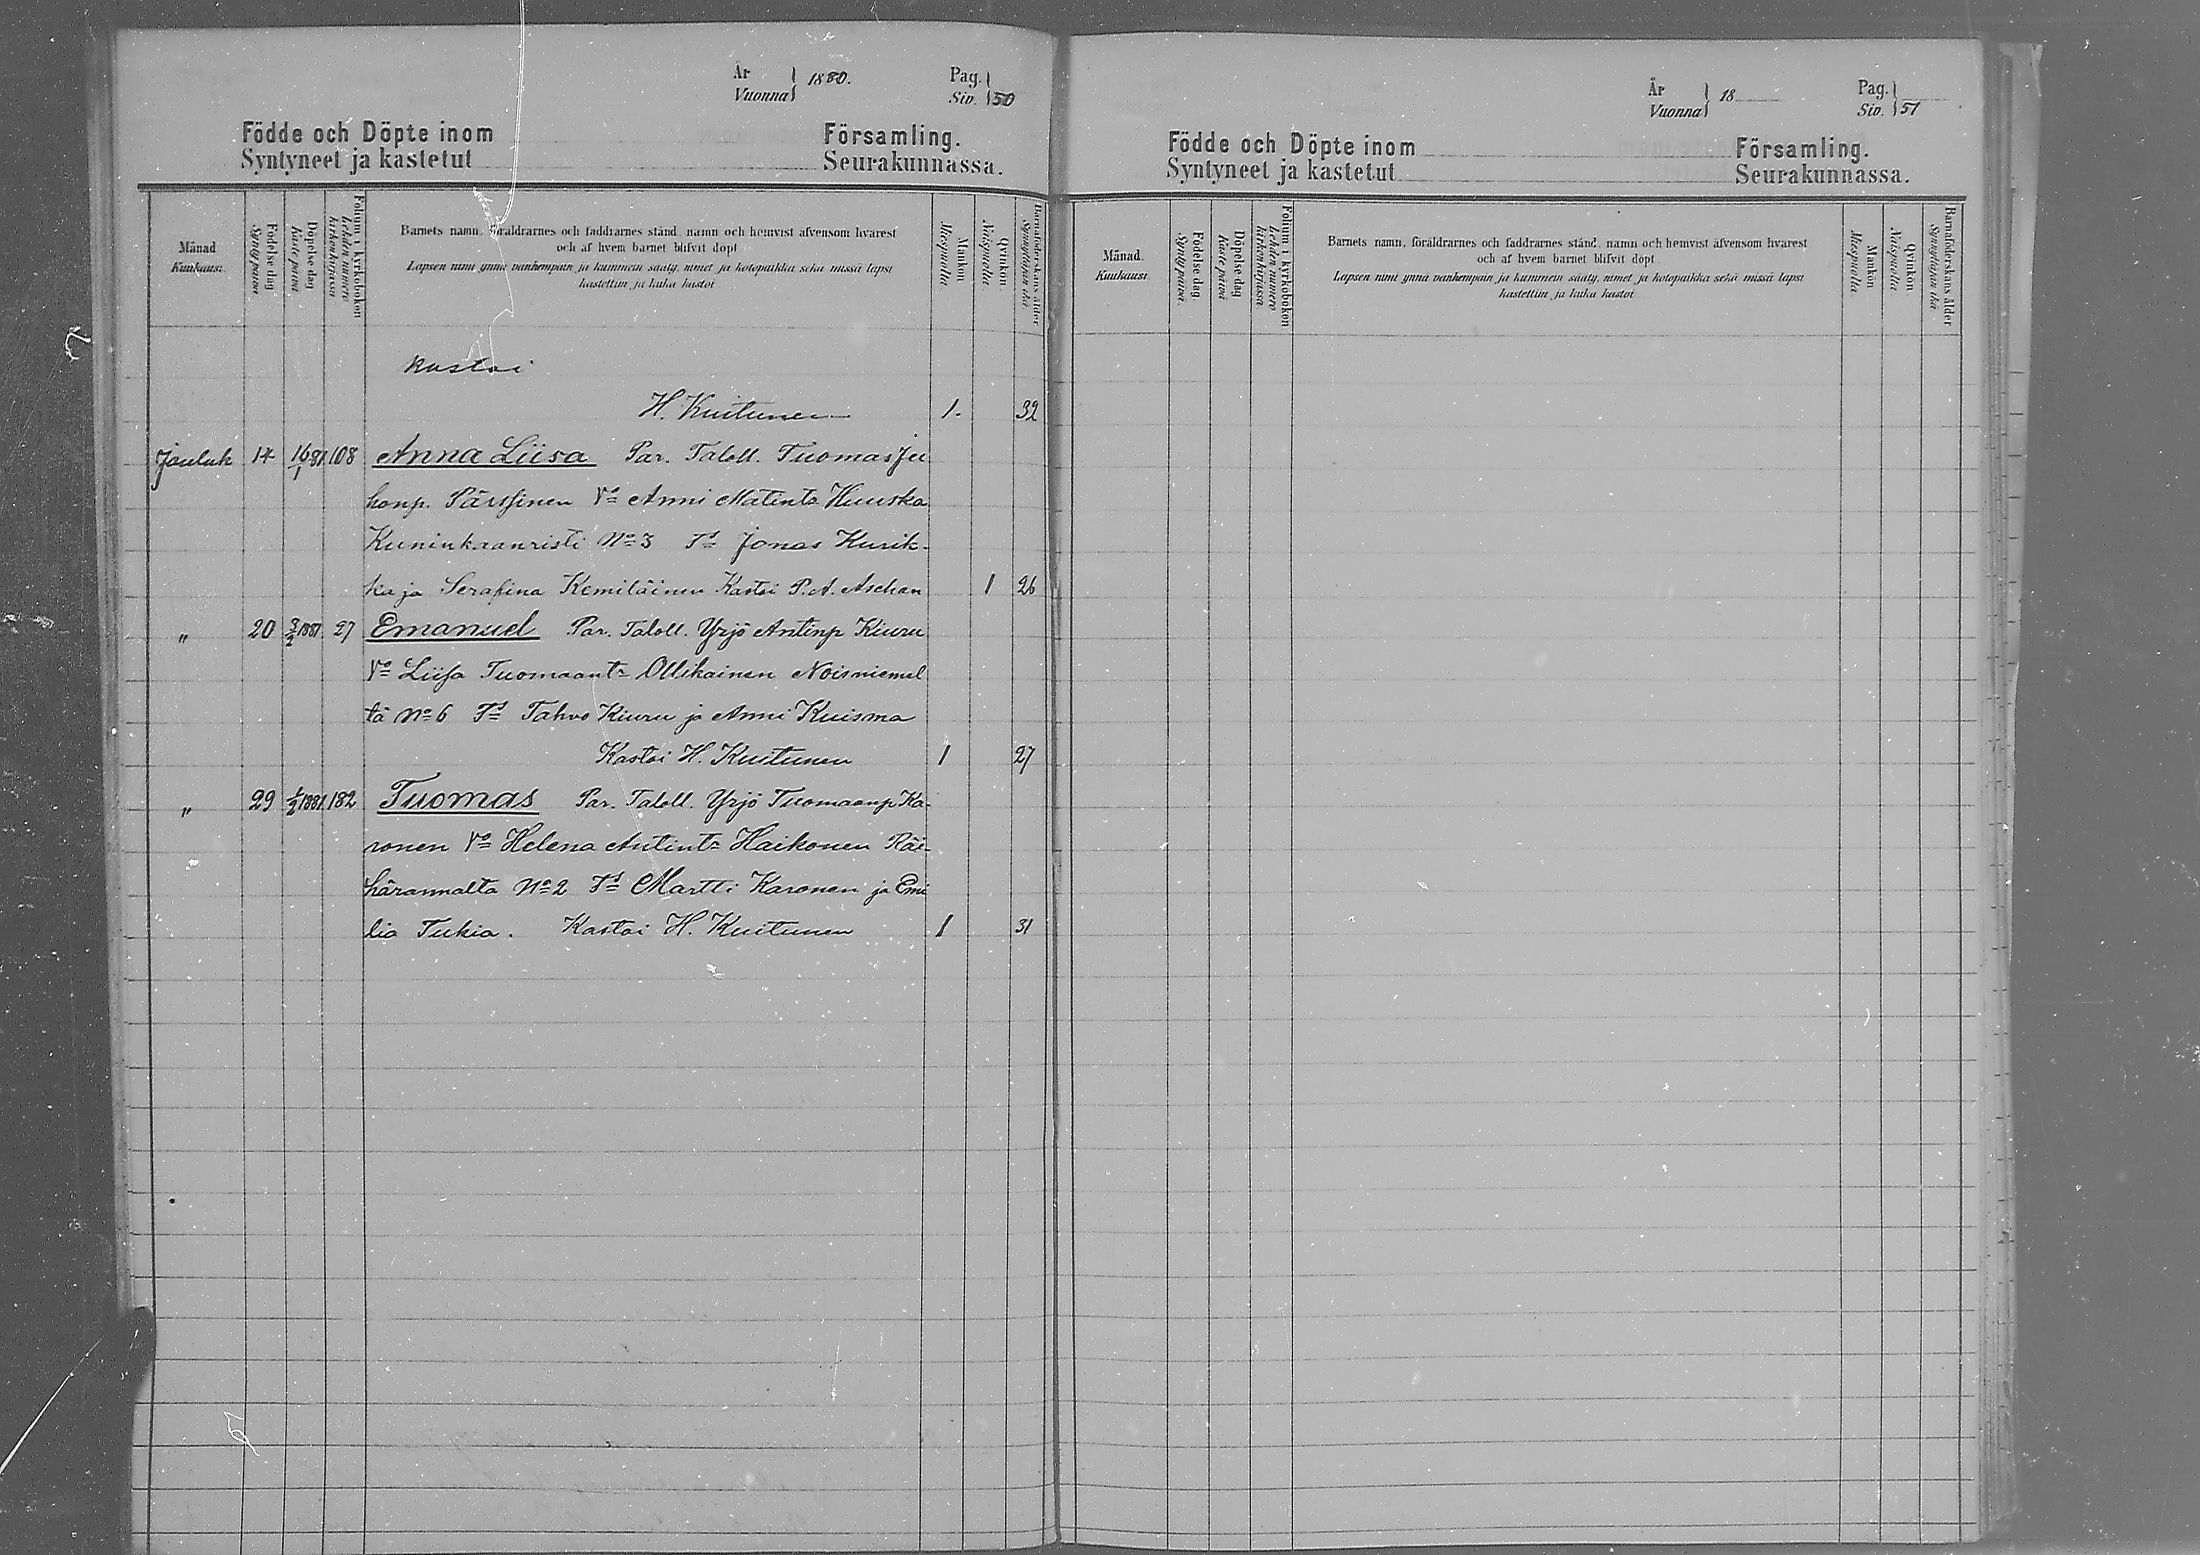 År
Vuonna 1880.
Pag.
Siv. 50
Födde och Döpte inom Församling.
Syntyneet ja kastetut Seurakunnassa.
Månad
Kuukausi.
Födelse dag
Synty päivä
Döpelse dag
Kaste päivä
Folium i kyrkoboken
Lehden numero
kirkonkirjassa
Barnets namn, föräldrarnes och faddrarnes stånd, namn och hemvist äfvensom hvarest
och af hvem barnet blifvit döpt
Lapsen nimi ynnä vanhempain ja kummein sääty, nimet ja kotopaikka sekä missä lapsi
kastettiin ja kuka kastoi
Mankön
Miespuolia
Qvinkön
Naispuolia
Barnaföderskans ålder
Synnyttäjän ikä
kastoi
H. Kuitunen 1. 32
Jouluk 14 16/1 81. 108 Anna Liisa Par. Taloll. Tuomas Ju
honp. Pärssinen Vo Anni Matintr Huuska
Kuninkaanristi No 3 Ts Jonas Kurik-
ka ja Serafina Kemiläinen Kastoi P. A. Aschan 1 26
" 20 3/2 1881 27 Emanuel Par. Taloll. Yrjö Antinp Kiuru
Vo Liisa Tuomaantr Ollikainen Noisniemel
tä No 6 Ts Tahvo Kiuru ja Anni Kuisma
Kastoi H. Kuitunen 1 27
" 29 1/2 1881. 182 Tuomas Par. Taloll. Yrjö Tuomaanp Ka-
ronen Vo Helena Antintr Haikonen Räi-
härannalta No 2 Ts Martti Karonen ja Emi
lia Tukia. Kastoi H. Kuitunen 1 31
År
Vuonna 18
Pag.
Siv. 51
Födde och Döpte inom Församling.
Syntyneet ja kastetut Seurakunnassa.
Månad.
Kuukausi
Födelse dag
Synty päivä.
Döpelse dag
Kaste päivä
Folium i kyrkoboken
Lehden numero
kirkonkirjassa.
Barnets namn, föräldrarnes och faddrarnes stånd, namn och hemvist äfvensom hvarest
och af hvem barnet blifvit döpt.
Lapsen nimi ynnä vanhempain ja kummein sääty, nimet ja kotopaikka sekä missä lapsi
kastettiin ja kuka kastoi
Mankön
Miespuolia
Qvinkön.
Naispuolia
Barnaföderskans ålder
Synnyttäjän ikä